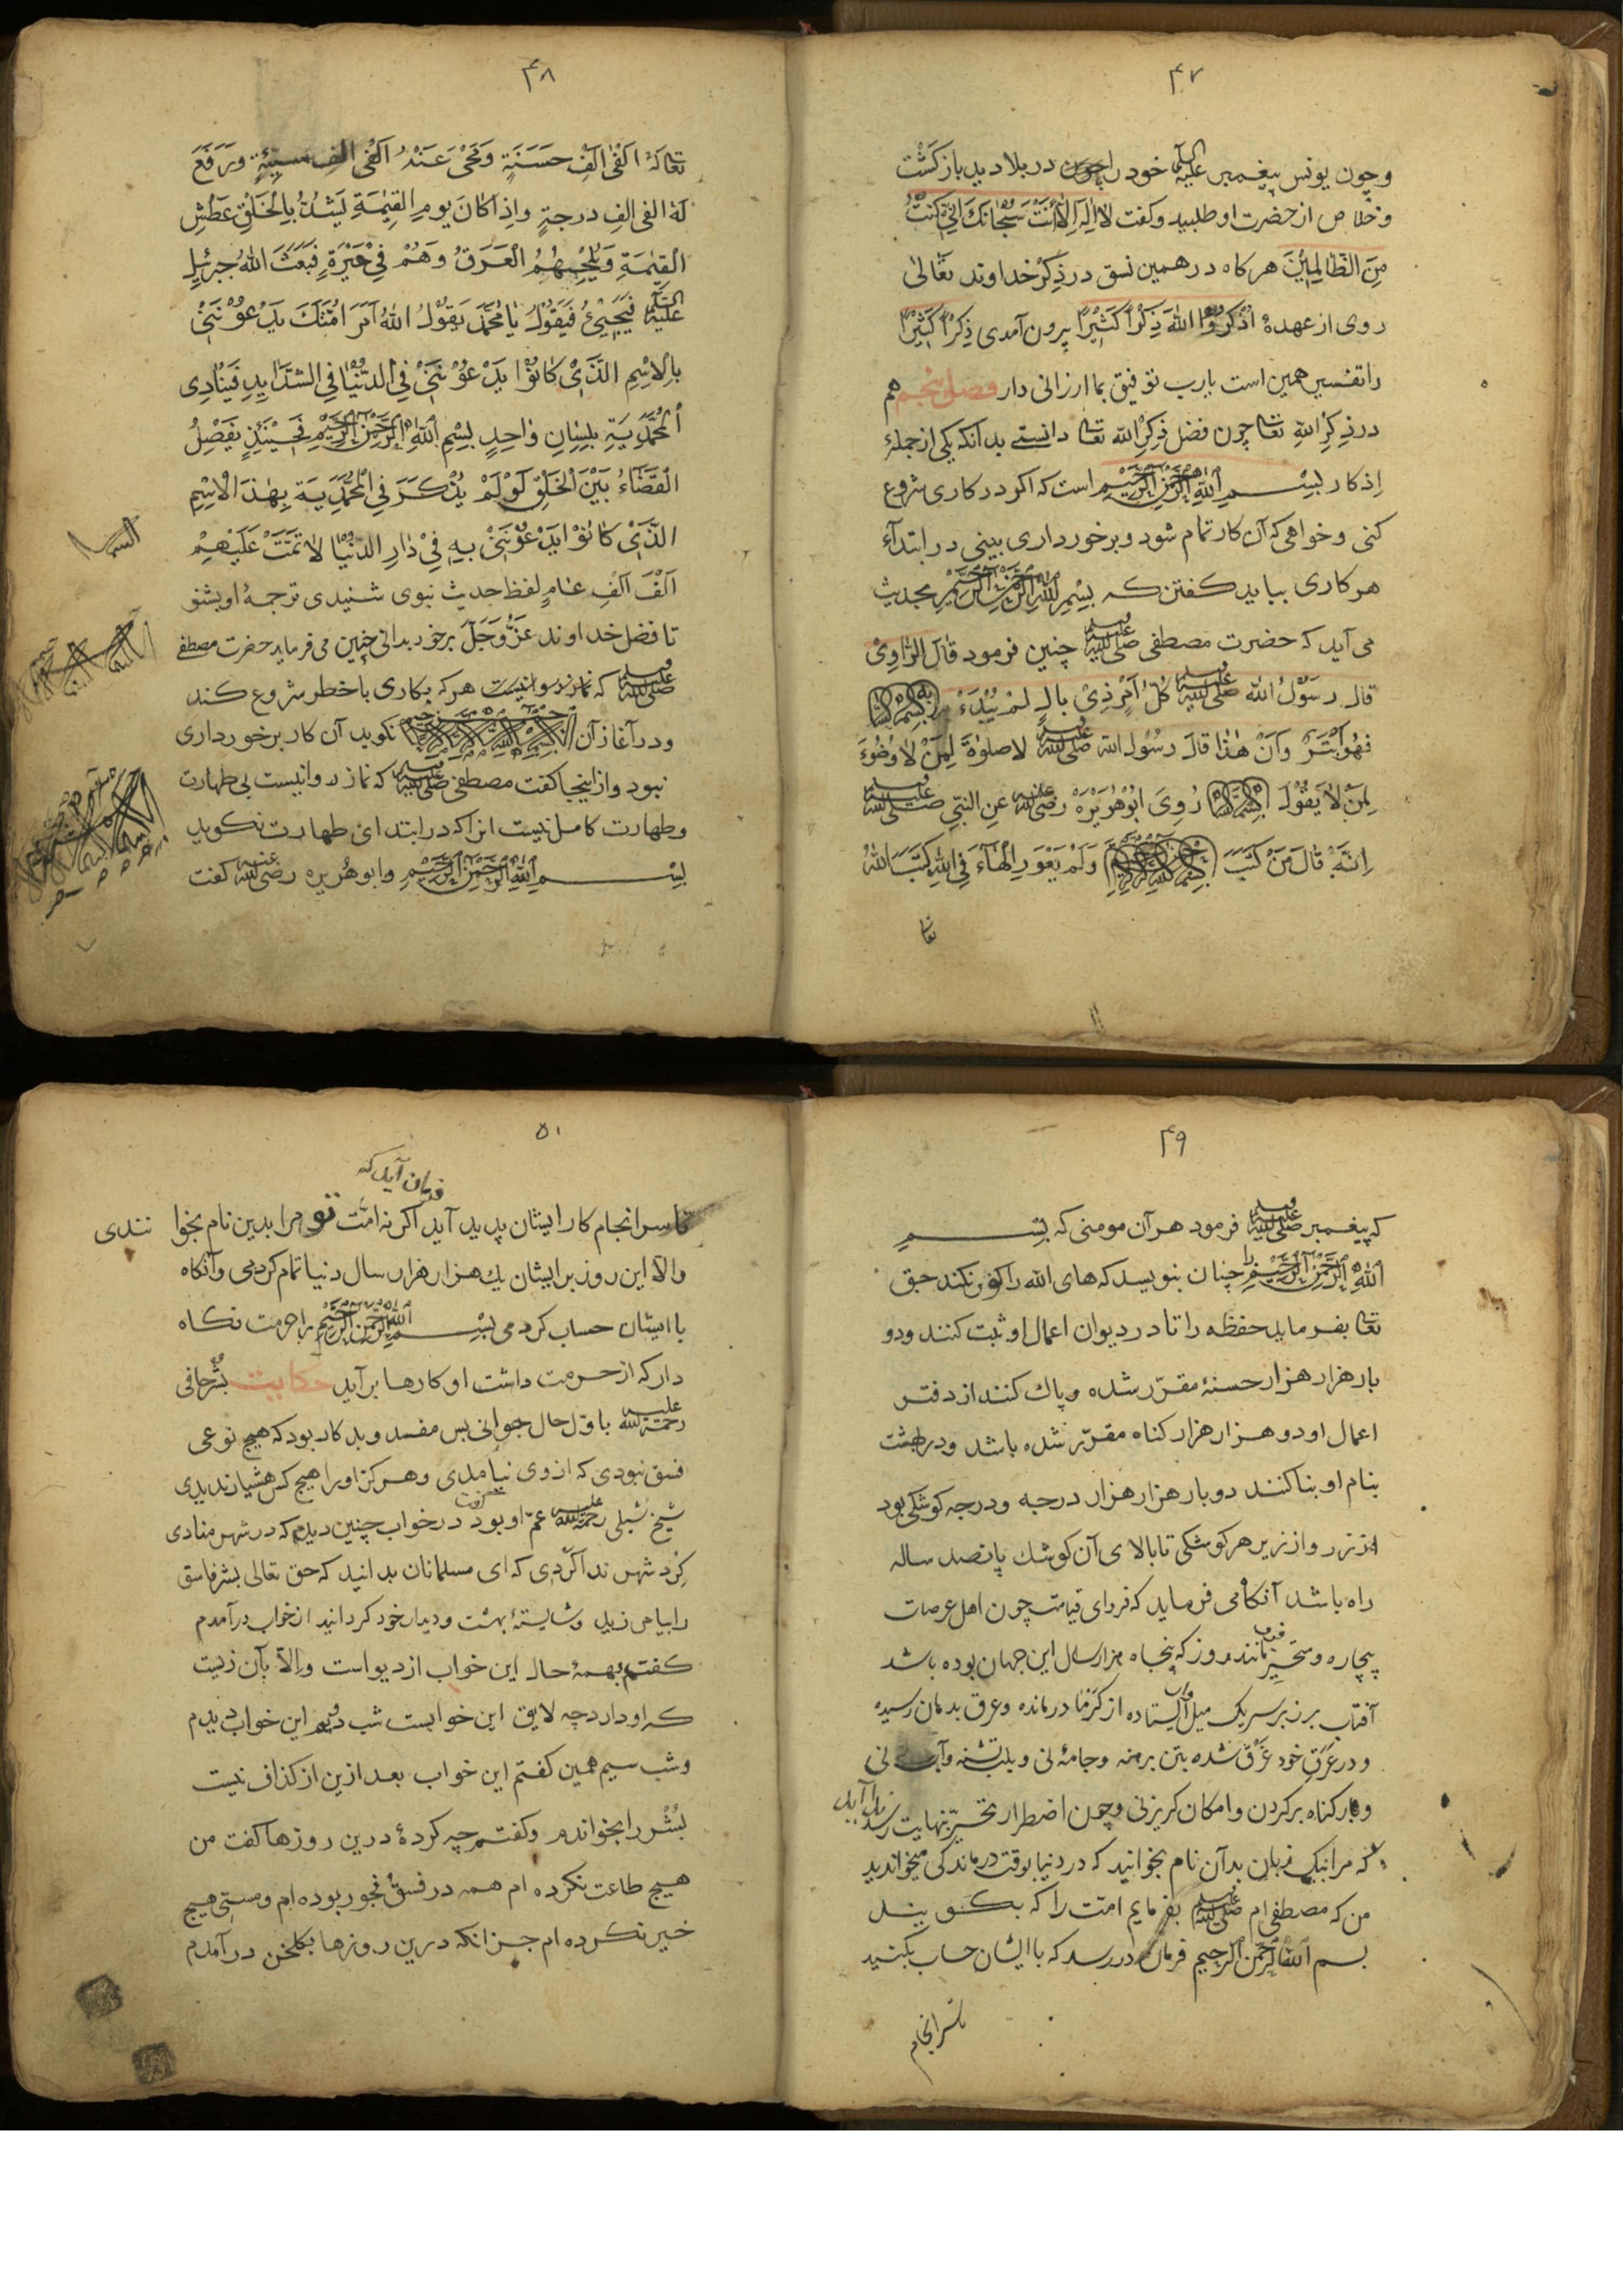 ۴۷
وچون یونس پیغمبر علیه السلام خود را چون در بلا دید باز کشت
و خلاص از حضرت او طلبید و کفت لا اله الا انت سبحانک انی کنت
من الظالمین هر کاه در همین نسق در ذکر خداوند تعالی
روی از عهدهٔ اذکروا الله ذکرا کثیرا برون آمدی ذکرا کثیرا
را تفسیر همین است یارب توفیق بما ارزانی دار فصل پنجم هم
در ذکر الله تعا چون فضل ذکر الله تعا دانستی بدانکه یکی از جملهٔ
اذکار بسم الله الرحمن الرحیم است که اکر در کاری شروع
کنی و خواهی که آن کار تمام شود و برخورداری بینی در ابتدآء
هر کاری بباید کفتن که بسم الله الرحمن الرحیم بحدیث
می آید که حضرت مصطفی صلی الله علیه وسلم چنین فرمود قال الراوی
قال رسول الله صلی الله علیه وسلم کل امر ذی بال لم یبدء به بسم الله
فهو ابتر وان هذا قال رسول الله صلی الله علیه وسلم لا صلوة لمن لا وضوء
لمن لا یقول بسم الله روی ابو هریرة رضی الله عنه عن النبی صلی الله علیه وسلم
انه قال من کتب بسم الله الرحمن الرحیم ولم یعور الهاء فی الله کتب الله
تعا
۴۸
تعا له الفی الف حسنة ومحی عنه الفی الف سیئة ورفع
له الفی الف درجة واذا کان یوم القیمة یشد بالخلق عطش
القیمة ویلجمهم العرق وهم فی حیرة فبعث الله جبرئیل
علیه السلام فیجیئ فیقول یا محمد یقول الله امر امتک یدعوننی
بالاسم الذی کانوا یدعوننی فی الدنیا فی الشداید فینادی
المحمدیة بلسان واحد بسم الله الرحمن الرحیم فحینئذ یفصل
القضاء بین الخلق لو لم یذکر فی المحمدیة بهذا الاسم
الذی کانوا یدعوننی به فی دار الدنیا لاتمت علیهم
الف الف عام لفظ حدیث نبوی شنیدی ترجمهٔ او بشنو
تا فضل خداوند عز وجل بر خود بدانی چنین می فرماید حضرت مصطفی
صلی الله علیه وسلم که نماز روا نیست هر که بکاری با خطر شروع کند
و در آغاز آن بسم الله الرحمن الرحیم نکوید آن کار برخورداری
نبود و از اینجا کفت مصطفی صلی الله علیه وسلم که نماز روا نیست بی طهارت
و طهارت کامل نیست انرا که در ابتدای طهارت نکوید
بسم الله الرحمن الرحیم و ابو هریره رضی الله عنه کفت
۴۹
که پیغمبر صلی الله علیه وسلم فرمود هر آن مومنی که بسم
الله الرحمن الرحیم را چنان بنویسد که های الله را کور نکند حق
تعا بفرماید حفظه را تا در دیوان اعمال او ثبت کنند و دو
بار هزار هزار حسنهٔ مقرر شده و پاک کنند از دفتر
اعمال او دو هزار هزار کناه مقرر شده باشد و در بهشت
بنام او بنا کنند دو بار هزار هزار درجه و درجه کوشکی بود
از زر و از زیر هر کوشکی تا بالای آن کوشک پانصد ساله
راه باشد آنکاه می فرماید که فردای قیامت چون اهل عرصات
بیچاره و متحیر فرو مانند روز که پنجاه هزار سال این جهان بوده باشد
آفتاب بر زبر سر یک میل ایستاده از کرما درمانده و عرق بدهان رسیده
و در عرق خود غرق شده بتن برهنه و جامهٔ نی و بلب تشنه و آب نی
و بار کناه بر کردن و امکان کریز نی و چون اضطرار تحیر بنهایت رسد ندا آید
که مرا بیک زبان بدآن نام بخوانید که در دنیا بوقت درماندکی میخواندید
من که مصطفی ام صلی الله علیه وسلم بفرمایم امت را که بکویند
بسم الله الرحمن الرحیم فرمان در رسد که با ایشان حساب بکنید
تا سرانجام
۵۱
فرمان آید که
تا سرانجام کار ایشان پدید آید اکر نه امت تو مرا بدین نام بخواندندی
والا این روز بر ایشان یک هزار هزار سال دنیا تمام کردمی و آنکاه
با ایشان حساب کردمی بسم الله الرحمن الرحیم را حرمت نکاه
دار که از حرمت داشت او کارها بر آید حکایت بشر حافی
رحمة الله علیه باول حال جوانی بس مفسد و بدکار بود که هیچ نوعی
فسق نبودی که از وی نیامدی و هرکز او را هیچ کس هشیار ندیدی
شیخ شبلی رحمة الله علیه عم او بود کفت در خواب چنین دیدم که در شهر منادی
کرد شهر ندا کردی که ای مسلمانان بدانید که حق تعالی بشر فاسق
را بیامرزید و شایستهٔ بهشت و دیدار خود کردانید از خواب درآمدم
کفتم بهمهٔ حال این خواب از دیو است والا بآن زیست
که او دارد چه لایق این خوابست شب دویم این خواب دیدم
و شب سیم همین کفتم این خواب بعد ازین از کذاف نیست
بشر را بخواندم و کفتم چه کردهٔ درین روزها کفت من
هیچ طاعت نکرده ام همه در فسق و فجور بوده ام و مستی هیچ
خیر نکرده ام جز انکه درین روزها بکلخن درآمدم